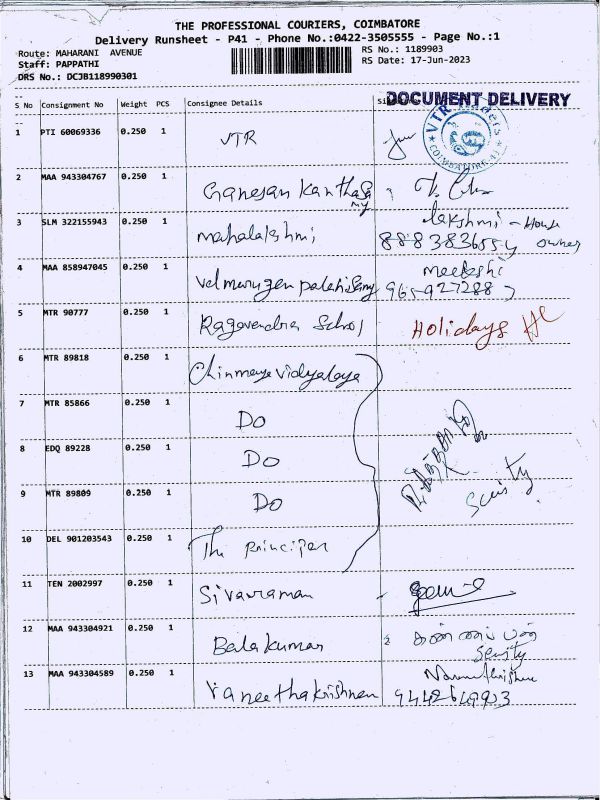 THE PROFESSIONAL COURIERS, COIMBATORE
Delivery Runsheet - P41 - Phone No.:0422-3505555 - Page No.:1
Route: MAHARANI AVENUE RS No.: 1189903
Staff: PAPPATHI RS Date: 17-Jun-2023
DRS No.: DCJB118990301
DOCUMENT DELIVERY
S No Consignment No Weight PCS Consignee Details
1 PTI 60069336 0.250 1 VTR
VTR
COIMBATORE
2 MAA 943304767 0.250 1 Ganesan Kanthasamy
3 SLM 322155943 0.250 1 mahalakshmi Lakshmi - House
8883836554 owner
4 MAA 858947045 0.250 1 velmurugen palanisamy
5 MTR 90777 0.250 1 Ragavendra School Holidays
6 MTR 89818 0.250 1 Chinmaya vidyalaya
7 MTR 85866 0.250 1 Do
8 EDQ 89228 0.250 1 Do
9 MTR 89809 0.250 1 Do
10 DEL 901203543 0.250 1 The principer
11 TEN 2002997 0.250 1 Sivaraman
12 MAA 943304921 0.250 1 Balakumar
13 MAA 943304589 0.250 1 Vaneethakrishnan